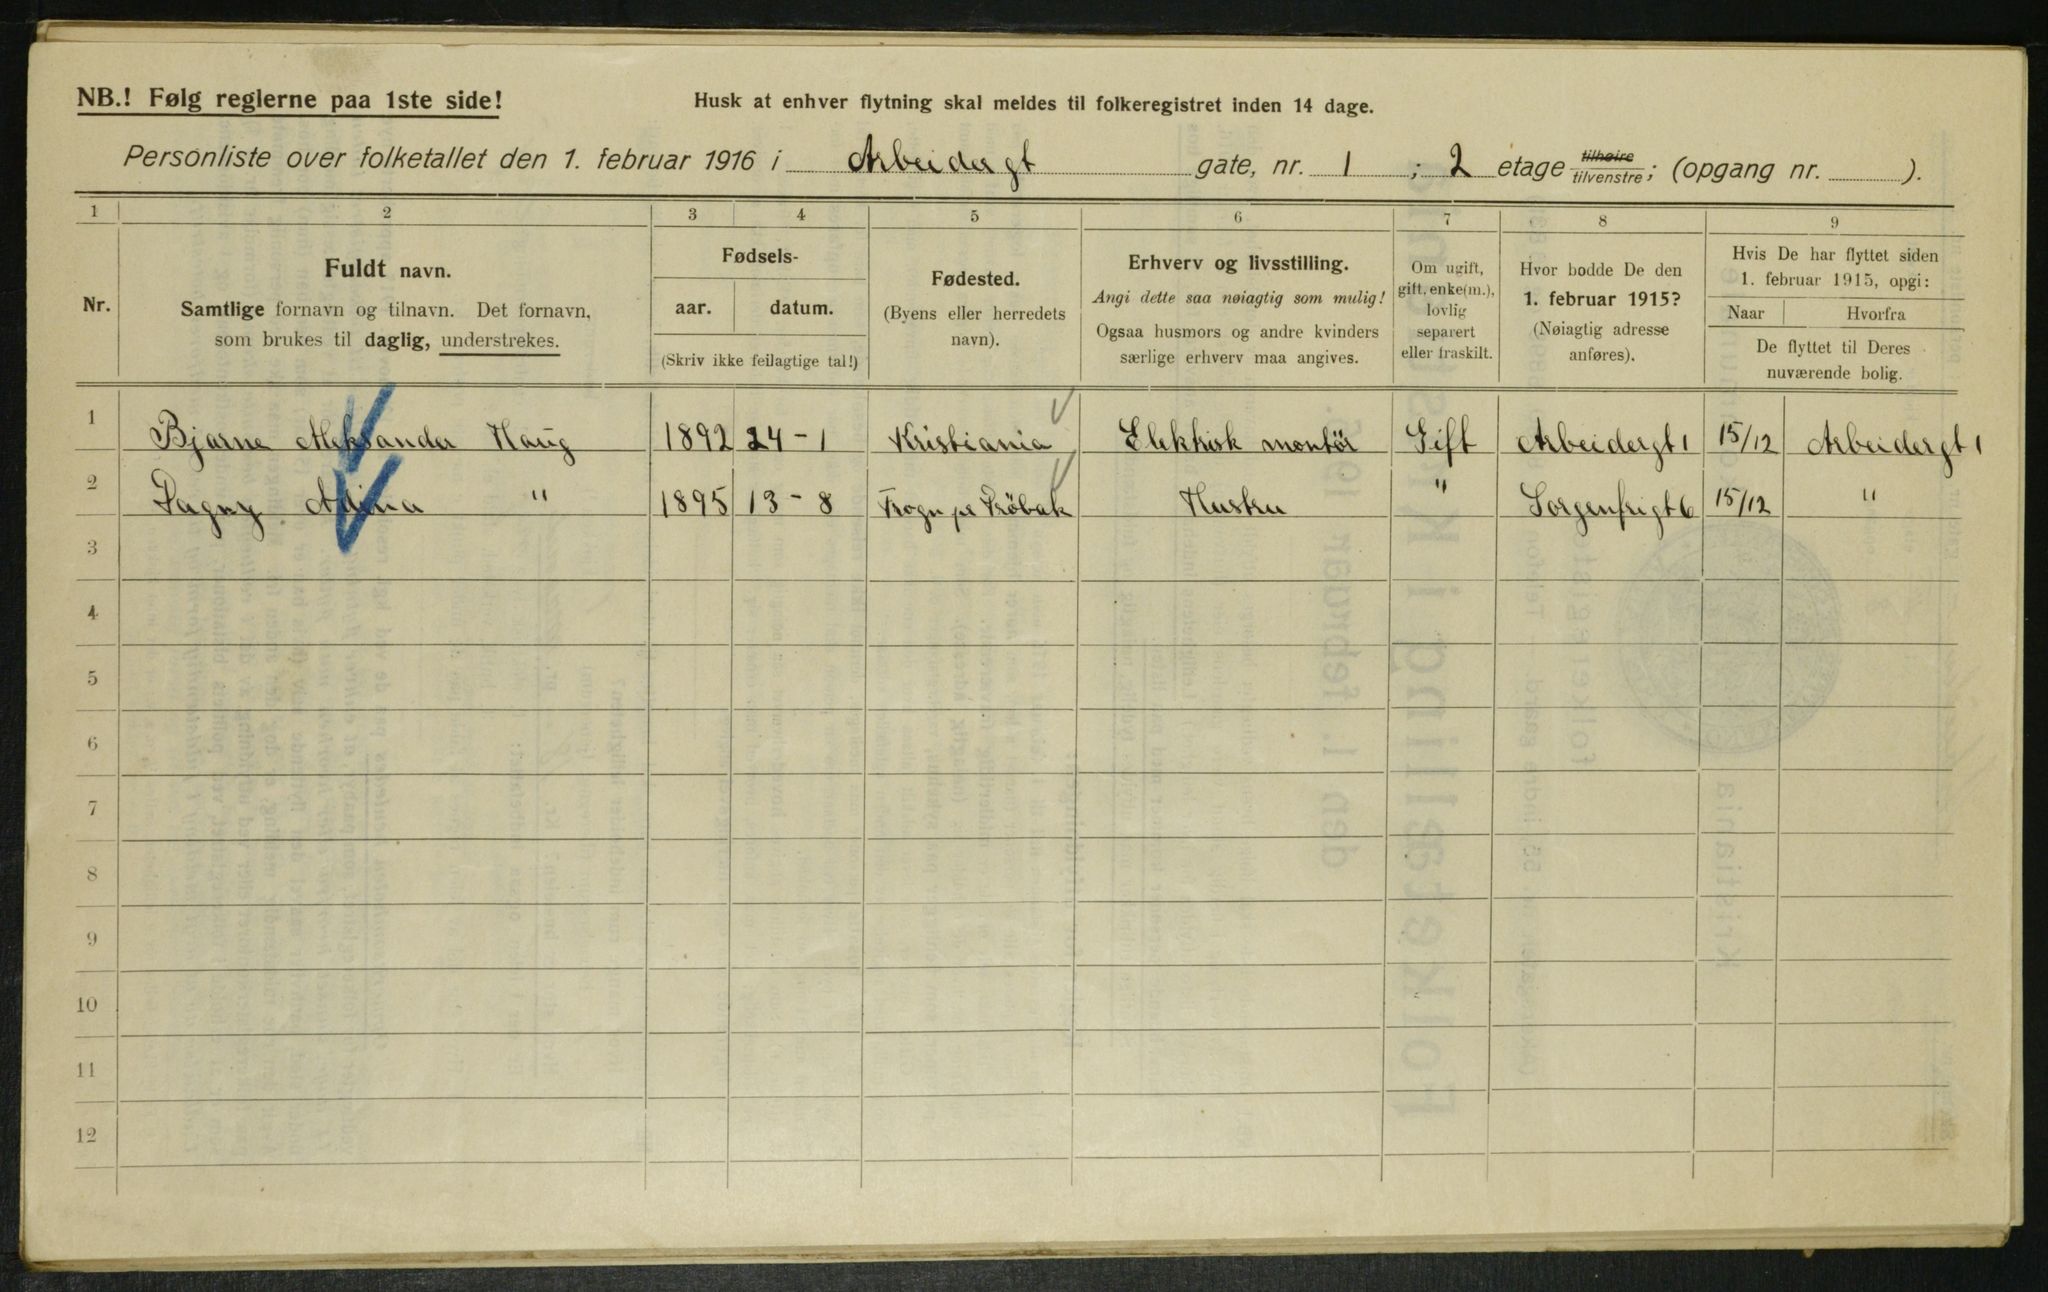 NB.! Følg reglerne paa 1ste side!
Husk at enhver flytning skal meldes til folkeregistret inden 14 dage.
Personliste over folketallet den 1. februar 1916 i Arbeidergt gate, nr. 1 ; 2 etage tilhøire tilvenstre; (opgang nr. ).
1 2 3 4 5 6 7 8 9
Nr.
Fuldt navn.
Samtlige fornavn og tilnavn. Det fornavn,
som brukes til daglig, understrekes.
Fødsels-
aar. datum.
(Skriv ikke feilagtige tal!)
Fødested.
(Byens eller herredets
navn).
Erhverv og livsstilling.
Angi dette saa nøiagtig som mulig!
Ogsaa husmors og andre kvinders
særlige erhverv maa angives.
Om ugift,
gift, enke(m.),
lovlig
separert
eller fraskilt.
Hvor bodde De den
1. februar 1915?
(Nøiagtig adresse
anføres).
Hvis De har flyttet siden
1. februar 1915, opgi:
Naar Hvorfra
De flyttet til Deres
nuværende bolig.
1 Bjarne Aleksander Haug 1892 24-1 Kristiania Elektrisk montör Gift Arbeidergt 1 15/12 Arbeidergt 1
2 Dagny Adina " 1895 13-8 Frogn pr Dröbak Hustru " Sorgenfrigt 6 15/12 "
3
4
5
6
7
8
9
10
11
12